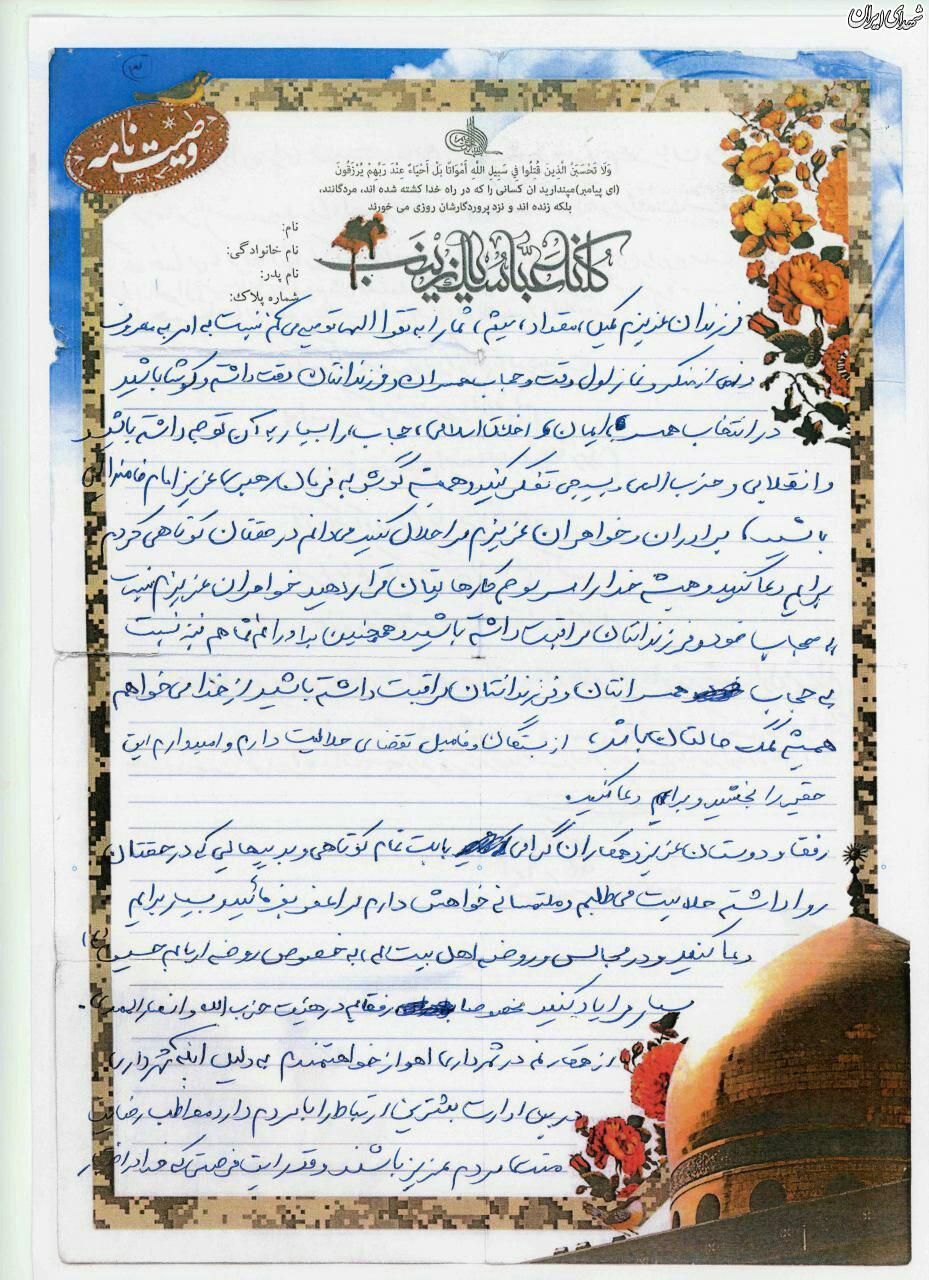 شهدای ایران
۳
وصیت نامه
وَلَا تَحْسَبَنَّ الَّذِينَ قُتِلُوا فِي سَبِيلِ اللَّهِ أَمْوَاتًا بَلْ أَحْيَاءٌ عِنْدَ رَبِّهِمْ يُرْزَقُونَ
(ای پیامبر)مپندارید ان کسانی را که در راه خدا کشته شده اند، مردگانند،
بلکه زنده اند و نزد پروردگارشان روزی می خورند
کلنا عباسک یا زینب
نام:
نام خانوادگی:
نام پدر:
شماره پلاک:
فرزندان عزیزم کمیل، مقداد، میثم، شما را به تقوا الهی توصیه می کنم نسبت به امر به معروف
و نهی از منکر و نماز اول وقت و حجاب همسران و فرزندانتان دقت داشته و کوشا باشید
در انتخاب همسر با ایمان و اخلاق اسلامی، حجاب، را بسیار به آن توجه داشته باشید
و انقلابی و حزب الهی و بسیجی تفکر کنید و همیشه گوش به فرمان رهبری عزیز امام خامنه ای
باشید، برادران و خواهران عزیزم مرا حلال کنید می دانم در حقتان کوتاهی کردم
برایم دعا کنید و همیشه خدا را سر لوحه کارهایتان قرار دهید خواهران عزیزم نسبت
به حجاب خود و فرزندانتان مراقبت داشته باشید و همچنین برادرانم شما هم نیز نسبت
به حجاب همسرانتان و فرزندانتان مراقبت داشته باشید از خدا می خواهم
همیشه کمک حالتان باشد، از بستگان و فامیل تقضای حلالیت دارم و امیدوارم این
حقیر را ببخشید و برایم دعا کنید.
رفقا و دوستان عزیز و همکاران گرامی بابت تمام کوتاهی و بدیهایی که در حقتان
روا داشتم حلالیت می طلبم و ملتمسانه خواهش دارم مرا عفو بفرمائید و بسیار برایم
دعا کنید و در مجالس و روضه اهل بیت الهی، به خصوص روضه اربابم حسین (ع)
بسیار مرا یاد کنید مخصوصا رفقایم در هیئت حزب الله و انصار المهدی.
از همکارانم در شهرداری اهواز خواهتمندم به دلیل اینکه شهرداری
در بین ادارت بیشترین ارتباط را با مردم دارد مواظب
مردم عزیز باشند و قدر این فرصتی که خدا در